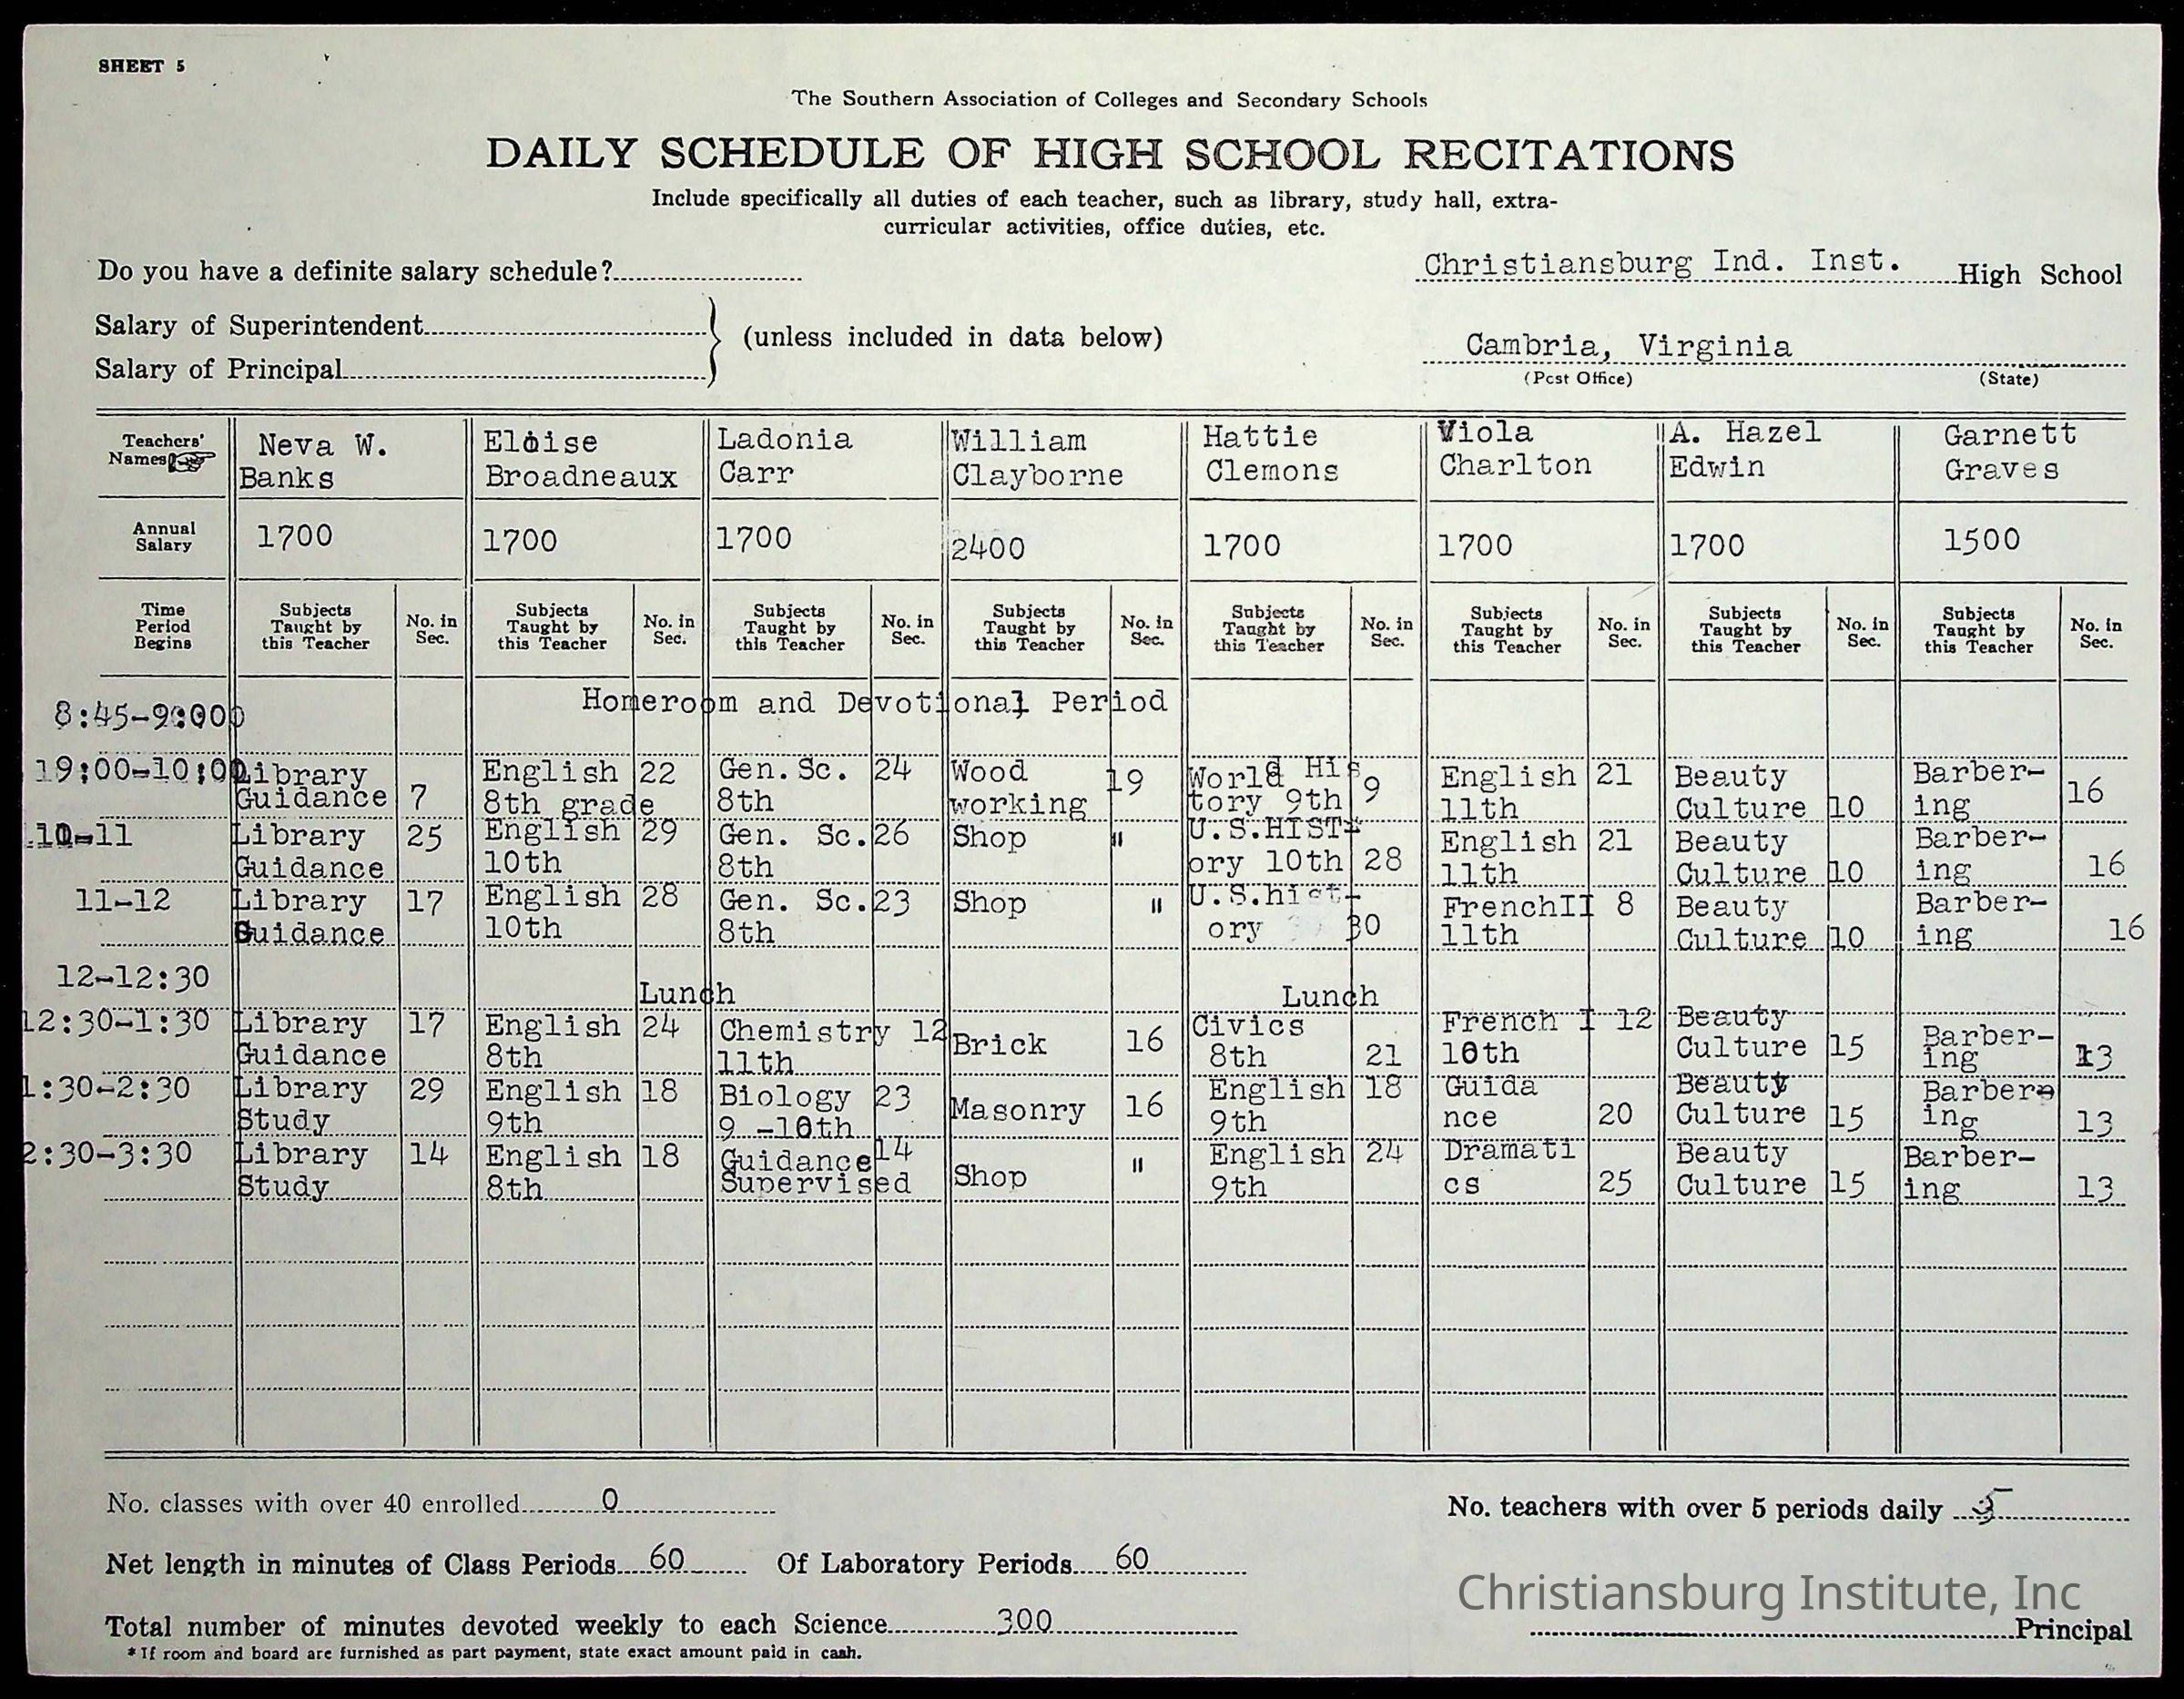 SHEET 5
The Southern Association of Colleges and Secondary Schools
DAILY SCHEDULE OF HIGH SCHOOL RECITATIONS
Include specifically all duties of each teacher, such as library, study hall, extra-
curricular activities, office duties, etc.
Do you have a definite salary schedule?
Christiansburg Ind. Inst. High School
Salary of Superintendent
(unless included in data below)
Cambria, Virginia
Salary of Principal
(Post Office) (State)
Teachers' Neva W. Eloise Ladonia William Hattie Viola A. Hazel Garnett
Names Banks Broadneaux Carr Clayborne Clemons Charlton Edwin Graves
Annual
Salary 1700 1700 1700 2400 1700 1700 1700 1500
Time Subjects Subjects Subjects Subjects Subjects Subjects Subjects Subjects
Period Taught by No. in Taught by No. in Taught by No. in Taught by No. in Taught by No. in Taught by No. in Taught by No. in Taught by No. in
Begins this Teacher Sec. this Teacher Sec. this Teacher Sec. this Teacher Sec. this Teacher Sec. this Teacher Sec. this Teacher Sec. this Teacher Sec.
8:45-9:00 Homeroom and Devotional Period
19:00-10:00 Library English 22 Gen. Sc. 24 Wood 19 World His English 21 Beauty Barber-
Guidance 7 8th grade 8th working tory 9th 9 11th Culture 10 ing 16
10-11 Library 25 English 29 Gen. Sc. 26 Shop " U.S.HIST- English 21 Beauty Barber-
Guidance 10th 8th ory 10th 28 11th Culture 10 ing 16
11-12 Library 17 English 28 Gen. Sc. 23 Shop " U.S.hist- FrenchII 8 Beauty Barber-
Guidance 10th 8th ory 30 11th Culture 10 ing 16
12-12:30 Lunch Lunch
12:30-1:30 Library 17 English 24 Chemistry 12 Brick 16 Civics French I 12 Beauty Barber-
Guidance 8th 11th 8th 21 10th Culture 15 ing 13
1:30-2:30 Library 29 English 18 Biology 23 Masonry 16 English 18 Guida Beauty Barber-
Study 9th 9 -10th 9th nce 20 Culture 15 ing 13
2:30-3:30 Library 14 English 18 Guidance 14 Shop " English 24 Dramati Beauty Barber-
Study 8th Supervised 9th cs 25 Culture 15 ing 13
No. classes with over 40 enrolled 0
No. teachers with over 5 periods daily
Net length in minutes of Class Periods 60 Of Laboratory Periods 60
Christiansburg Institute, Inc
Total number of minutes devoted weekly to each Science 300
Principal
* If room and board are furnished as part payment, state exact amount paid in cash.